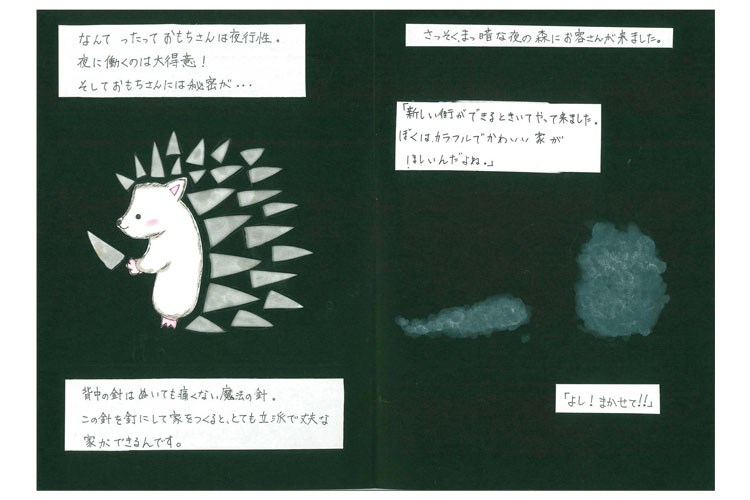 なんて ったって おもちさんは夜行性。
夜に働くのは大得意！
そしておもちさんには秘密が・・・
背中の針はぬいても痛くない魔法の針。
この針を釘にして家をつくると、とても立派で丈夫な
家ができるんです。
さっそく、まっ暗な夜の森にお客さんが来ました。
「新しい街ができるときいてやって来ました。
ぼくは、カラフルでかわいい家が
ほしいんだよね。」
「よし！まかせて!!」